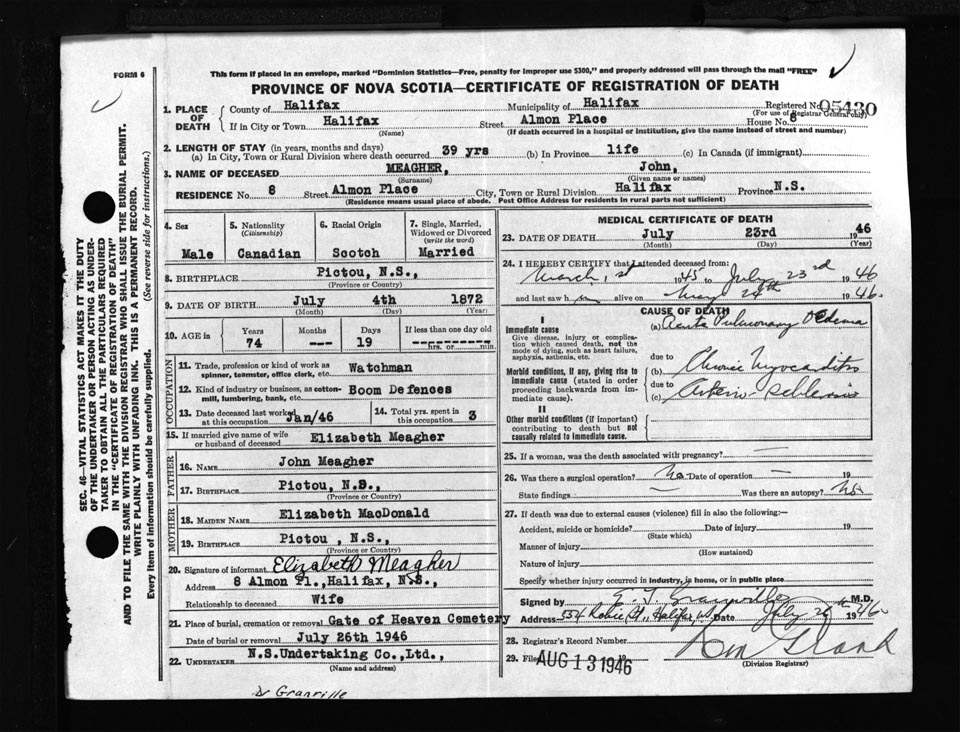 FORM 6
This form if placed in an envelope, marked "Dominion Statistics—Free, penalty for improper use $300," and properly addressed will pass through the mail "FREE"
PROVINCE OF NOVA SCOTIA—CERTIFICATE OF REGISTRATION OF DEATH
1. PLACE OF DEATH County of Halifax Municipality of Halifax Registered No. 05430
(For use of Registrar General only)
If in City or Town Halifax Street Almon Place House No. 8
(Name) (If death occurred in a hospital or institution, give the name instead of street and number)
2. LENGTH OF STAY (in years, months and days)
(a) In City, Town or Rural Division where death occurred 39 yrs (b) In Province life (c) In Canada (if immigrant)
3. NAME OF DECEASED MEAGHER, John,
(Surname) (Given name or names)
RESIDENCE No. 8 Street Almon Place City, Town or Rural Division Halifax Province N.S.
(Residence means usual place of abode. Post Office Address for residents in rural parts not sufficient)
4. Sex 5. Nationality (Citizenship) 6. Racial Origin 7. Single, Married, Widowed or Divorced (write the word)
Male Canadian Scotch Married
8. BIRTHPLACE Pictou, N.S.,
(Province or Country)
9. DATE OF BIRTH July 4th 1872
(Month) (Day) (Year)
10. AGE in Years Months Days If less than one day old
74 --- 19 ----------- hrs. or min.
OCCUPATION
11. Trade, profession or kind of work as spinner, teamster, office clerk, etc. Watchman
12. Kind of industry or business, as cotton-mill, lumbering, bank, etc. Boom Defences
13. Date deceased last worked at this occupation Jan/46 14. Total yrs. spent in this occupation 3
15. If married give name of wife or husband of deceased Elizabeth Meagher
FATHER
16. NAME John Meagher
17. BIRTHPLACE Pictou, N.S.,
(Province or Country)
MOTHER
18. MAIDEN NAME Elizabeth MacDonald
19. BIRTHPLACE Pictou, N.S.,
(Province or Country)
20. Signature of informant Elizabeth Meagher
Address 8 Almon Pl., Halifax, N.S.,
Relationship to deceased Wife
21. Place of burial, cremation or removal Gate of Heaven Cemetery
Date of burial or removal July 26th 1946
22. UNDERTAKER N.S.Undertaking Co., Ltd.,
(Name and address)
Dr Granville
MEDICAL CERTIFICATE OF DEATH
23. DATE OF DEATH July 23rd 1946
(Month) (Day) (Year)
24. I HEREBY CERTIFY that I attended deceased from:
March, 1st 1945 to July 23rd 1946
and last saw him alive on May 24th 1946.
CAUSE OF DEATH
I
Immediate cause (a) Acute Pulmonary Oedema
Give disease, injury or complication which caused death, not the mode of dying, such as heart failure, asphyxia, asthenia, etc.
due to
Morbid conditions, if any, giving rise to immediate cause (stated in order proceeding backwards from immediate cause).
(b) Chronic Myocarditis
due to
(c) Arterio-sclerosis
II
Other morbid conditions (if important) contributing to death but not causally related to immediate cause.
25. If a woman, was the death associated with pregnancy? —
26. Was there a surgical operation? No Date of operation — 19
State findings — Was there an autopsy? No
27. If death was due to external causes (violence) fill in also the following:—
Accident, suicide or homicide? Date of injury 19
(State which)
Manner of injury
(How sustained)
Nature of injury
Specify whether injury occurred in industry, in home, or in public place
Signed by E. J. Granville M.D.
Address 334 Robie St., Halifax Date July 26th 1946
28. Registrar's Record Number
29. Filed AUG 13 1946 19
(Division Registrar)
SEC. 46—VITAL STATISTICS ACT MAKES IT THE DUTY
OF THE UNDERTAKER OR PERSON ACTING AS UNDER-
TAKER TO OBTAIN ALL THE PARTICULARS REQUIRED
IN THE "CERTIFICATE OF REGISTRATION OF DEATH"
AND TO FILE THE SAME WITH THE DIVISION REGISTRAR WHO SHALL ISSUE THE BURIAL PERMIT.
WRITE PLAINLY WITH UNFADING INK. THIS IS A PERMANENT RECORD.
Every item of information should be carefully supplied. (See reverse side for instructions.)